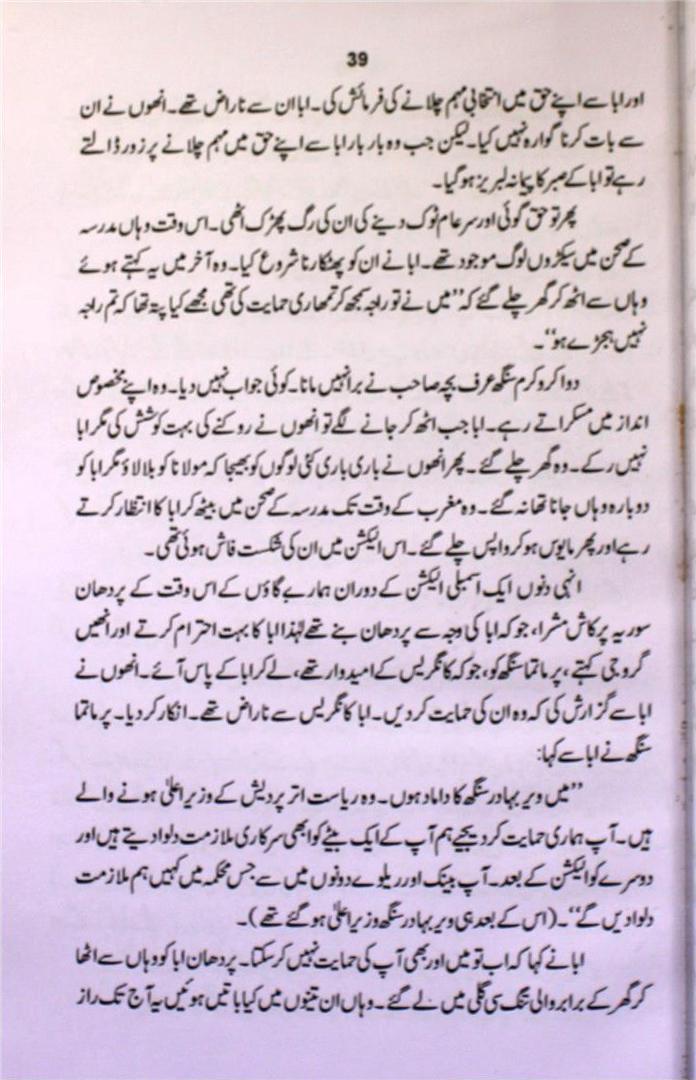 39
اور ابا سے اپنے حق میں انتخابی مہم چلانے کی فرمائش کی۔ ابا ان سے ناراض تھے۔ انھوں نے ان
سے بات کرنا گوارہ نہیں کیا۔ لیکن جب وہ بار بار ابا سے اپنے حق میں مہم چلانے پر زور ڈالتے
رہے تو ابا کے صبر کا پیمانہ لبریز ہو گیا۔
پھر تو حق گوئی اور سر عام ٹوک دینے کی ان کی رگ پھڑک اٹھی۔ اس وقت وہاں مدرسہ
کے صحن میں سیکڑوں لوگ موجود تھے۔ ابا نے ان کو پھٹکارنا شروع کیا۔ وہ آخر میں یہ کہتے ہوئے
وہاں سے اٹھ کر گھر چلے گئے کہ ”میں نے تو راجہ سمجھ کر تمھاری حمایت کی تھی مجھے کیا پتہ تھا کہ تم راجہ
نہیں ہجڑے ہو“۔
دوا کر وکرم سنگھ عرف بچہ صاحب نے برا نہیں مانا۔ کوئی جواب نہیں دیا۔ وہ اپنے مخصوص
انداز میں مسکراتے رہے۔ ابا جب اٹھ کر جانے لگے تو انھوں نے روکنے کی بہت کوشش کی مگر ابا
نہیں رکے۔ وہ گھر چلے گئے۔ پھر انھوں نے باری باری کئی لوگوں کو بھیجا کہ مولانا کو بلا لاؤ مگر ابا کو
دوبارہ وہاں جانا تھا نہ گئے۔ وہ مغرب کے وقت تک مدرسہ کے صحن میں بیٹھ کر ابا کا انتظار کرتے
رہے اور پھر مایوس ہو کر واپس چلے گئے۔ اس الیکشن میں ان کی شکست فاش ہوئی تھی۔
انہی دنوں ایک اسمبلی الیکشن کے دوران ہمارے گاؤں کے اس وقت کے پردھان
سوریہ پرکاش مشرا، جو کہ ابا کی وجہ سے پردھان بنے تھے لہٰذا ابا کا بہت احترام کرتے اور انھیں
گرو جی کہتے، پرماتما سنگھ کو، جو کہ کانگریس کے امیدوار تھے، لے کر ابا کے پاس آئے۔ انھوں نے
ابا سے گزارش کی کہ وہ ان کی حمایت کر دیں۔ ابا کانگریس سے ناراض تھے۔ انکار کر دیا۔ پرماتما
سنگھ نے ابا سے کہا:
”میں ویر بہادر سنگھ کا داماد ہوں۔ وہ ریاست اتر پردیش کے وزیر اعلیٰ ہونے والے
ہیں۔ آپ ہماری حمایت کر دیجیے ہم آپ کے ایک بیٹے کو ابھی سرکاری ملازمت دلوا دیتے ہیں اور
دوسرے کو الیکشن کے بعد۔ آپ بینک اور ریلوے دونوں میں سے جس محکمہ میں کہیں ہم ملازمت
دلوا دیں گے“۔ (اس کے بعد ہی ویر بہادر سنگھ وزیر اعلیٰ ہو گئے تھے)۔
ابا نے کہا کہ اب تو میں اور بھی آپ کی حمایت نہیں کر سکتا۔ پردھان ابا کو وہاں سے اٹھا
کر گھر کے برابر والی تنگ سی گلی میں لے گئے۔ وہاں ان تینوں میں کیا باتیں ہوئیں یہ آج تک راز